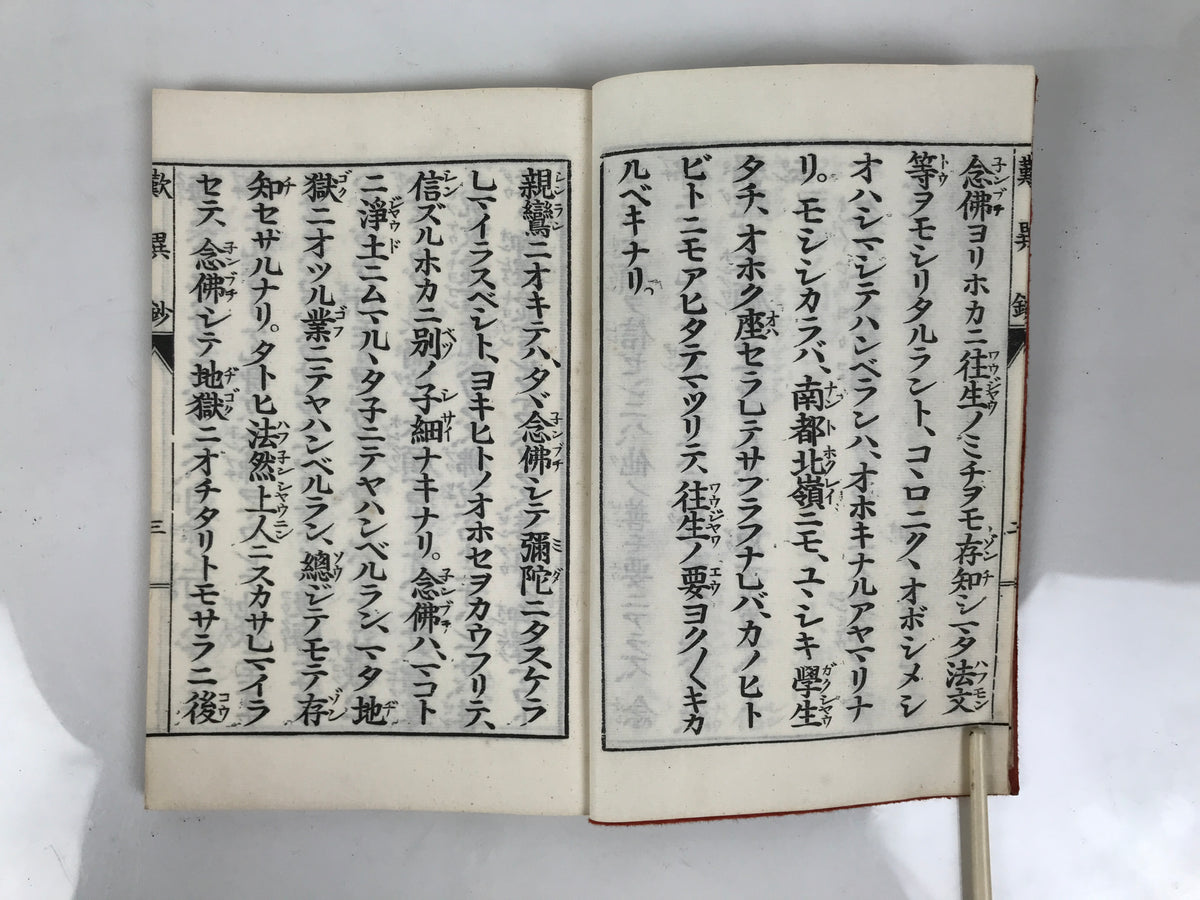 歎異鈔 二
念佛ヨリホカニ往生ノミチヲモ存知シマタ法文
等ヲモシリタルラント、コヽロニクヽオボシメシ
オハシマシテハンベランハ、オホキナルアヤマリナ
リ。モシシカラバ、南都北嶺ニモ、ユヽシキ學生
タチ、オホク座セラレテサフラフナレバ、カノヒト
ビトニモアヒタテマツリテ、往生ノ要ヨク〳〵キカ
ルベキナリ
親鸞ニオキテハ、タヾ念佛シテ彌陀ニタスケラ
レマイラスベシト、ヨキヒトノオホセヲカウフリテ、
信ズルホカニ別ノ子細ナキナリ。念佛ハ、マコト
ニ淨土ニムマルヽタ子ニテヤハンベルラン、マタ地
獄ニオツル業ニテヤハンベルラン、總ジテモテ存
知セザルナリ。タトヒ法然上人ニスカサレマイラ
セテ、念佛シテ地獄ニオチタリトモサラニ後
歎異鈔 三